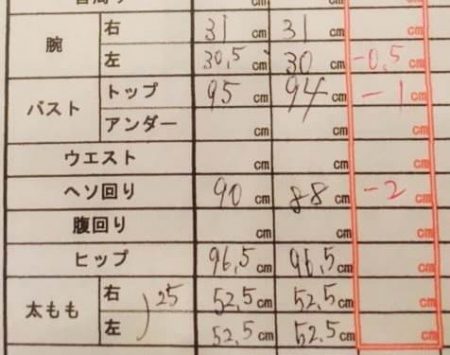 腕 右 31 cm 31 cm cm
左 30,5 cm 30 cm -0.5 cm
バスト トップ 95 cm 94 cm -1 cm
アンダー cm cm cm
ウエスト cm cm cm
ヘソ回り 90 cm 88 cm -2 cm
腹回り cm cm cm
ヒップ 96,5 cm 96,5 cm cm
太もも 右 25 52,5 cm 52,5 cm cm
左 52,5 cm 52,5 cm cm